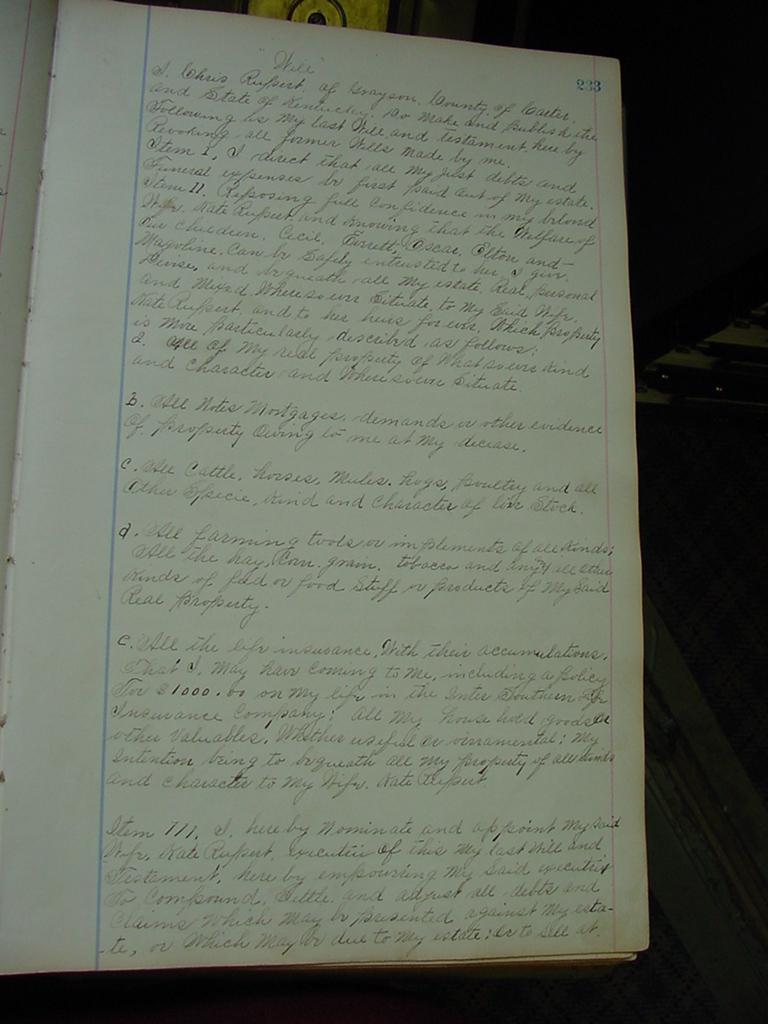 "Will"
233
I, Chris Rupert, of Grayson, County, of Carter,
and State of Kentucky, do Make and Publish the
Following as My last Will, and testament, here by
Revoking all former Wills made by me.
Item I, I direct that all my just debts and
Funeral expenses be first paid out of my estate.
Item II. Reposing full confidence in my beloved
Wife, Kate Rupert, and Knowing that the Welfare of
Our children, Cecil, Everett, Oscar, Elton and
Magoline, Can be Safely entrusted to her, I give,
Devise, and bequeath all My estate, Real, Personal
and Mixed, Where so ever Situate, to My Said Wife,
Kate Rupert, and to her heirs for ever, Which Property
is More Particularly described as follows;
a. All of My real property of What so ever Kind
and Character and Where so ever Situate.
B. All Notes Mortgages, demands or other evidence
Of Property Owing to me at My decease,
C. All Cattle, horses, Mules, hogs, Poultry and all
Other Specie, Kind and Character of live Stock.
d. All farming tools or implements of all Kinds;
All the hay, Corn, grain, tobacco and any & all other
Kinds of feed or food Stuff or products of My Said
Real Property.
C. All the life insurance, With their accumulations,
that I, May have coming to Me, including a Policy
For $1000.00 on My life in the Inter Southern Life
Insurance Company; All My house hold goods Or
other Valuables, Whether useful or ornamental; My
intention being to bequeath all My property of all Kinds
and character to My Wife, Kate Rupert.
Item 111, I, here by Nominate and appoint My Said
Wife, Kate Rupert, of this My last Will and
Testament, here by empowering My Said executrix
To Compound, Settle, and adjust all debts and
Claims Which May be presented against My esta-
te, or Which May be due to My estate; Or to Sell at